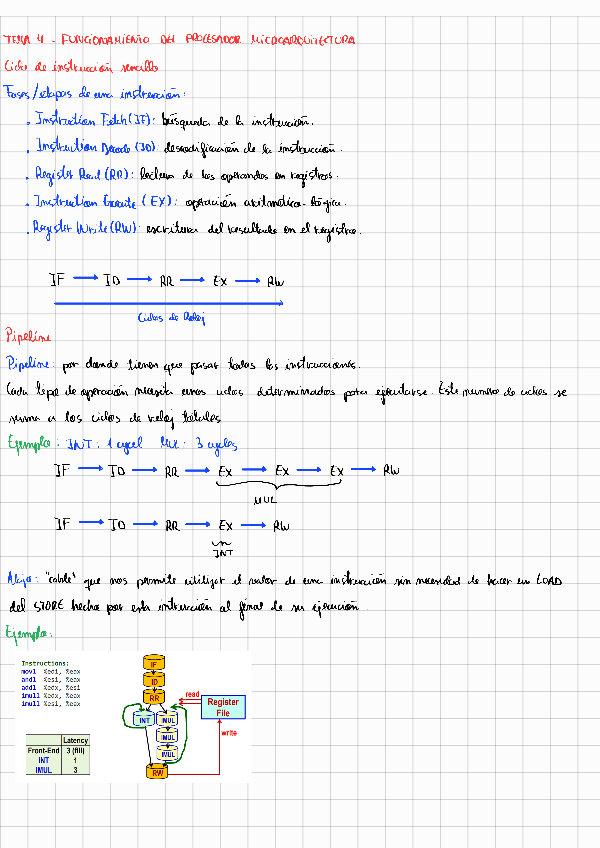 TEMA 4 - FUNCIONAMIENTO DEL PROCESADOR MICROARQUITECTURA
Ciclo de instrucción sencillo
Fases/etapas de una instrucción:
. Instruction Fetch (IF): búsqueda de la instrucción.
. Instruction Decode (ID): decodificación de la instrucción.
. Register Read (RR): lectura de los operandos en registros.
. Instruction Execute (EX): operación aritmética-lógica.
. Register Write (RW): escritura del resultado en el registro.
IF → ID → RR → EX → RW
Ciclos de Reloj
Pipeline
Pipeline: por donde tienen que pasar todas las instrucciones.
Cada tipo de operación necesita unos ciclos determinados para ejecutarse. Este numero de ciclos se
suma a los ciclos de reloj totales
Ejemplo: INT: 1 cycel MUL: 3 cycles
IF → ID → RR → EX → EX → EX → RW
MUL
IF → ID → RR → EX → RW
INT
"cable" que nos permite utilizar el valor de una instrucción sin necesidad de hacer un LOAD
del STORE hecho por esta intrucción al final de su ejecución.
Ejemplo:
Instructions:
movl %edi, %eax
andl %esi, %eax
addl %edx, %esi
imull %edx, %eax
imull %esi, %eax
IF
ID
RR
INT IMUL
IMUL
IMUL
RW
read
Register
File
write
Latency
Front-End 3 (fill)
INT 1
IMUL 3